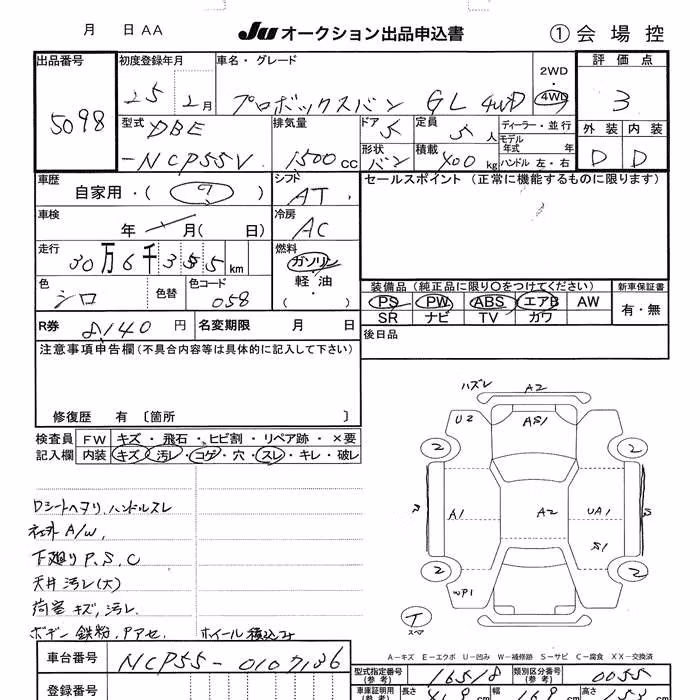 月 日 AA JU オークション出品申込書 ① 会場控
出品番号 初度登録年月 車名・グレード 2WD 評価点
5098 25年 2月 プロボックスバン GL 4WD 4WD 3
型式 DBE 排気量 ドア 5 定員 5人 ディーラー・並行 外装 内装
-NCP55V 1500cc 形状 バン 積載 400kg モデル年式 年 D D
ハンドル 左・右
車歴 シフト セールスポイント (正常に機能するものに限ります)
自家用・( ) AT
車検 冷房
年 月( 日) AC
走行 燃料
30万6千355km ガソリン
色 色替 色コード 軽油
シロ 058 ・( )
装備品 (純正品に限り○をつけてください) 新車保証書
PS PW ABS エアB AW 有・無
SR ナビ TV カワ
R券 8140円 名変期限 月 日 後日品
注意事項申告欄(不具合内容等は具体的に記入して下さい)
修復歴 有 〔箇所 〕
検査員 FW キズ・飛石・ヒビ割・リペア跡・×要
記入欄 内装 キズ・汚レ・コゲ・穴・スレ・キレ・破レ
Dシートヘタリ、ハンドルスレ
社外 A/W、
下廻り P、S、C
天井 汚レ(大)
荷室 キズ、汚レ、
ボデー 鉄粉、Pアセ、 ホイール積込み
ハズレ A2
U2 AS1
2 2
A1 A2 UA1
S1
2 2
WP1
T
スペア
A-キズ E-エクボ U-凹み W-補修跡 S-サビ C-腐食 XX-交換済
車台番号 NCP55-0107136
型式指定番号(参考) 16518 類別区分番号(参考) 0055
登録番号
車庫証明用(参考) 長さ 幅 高さ